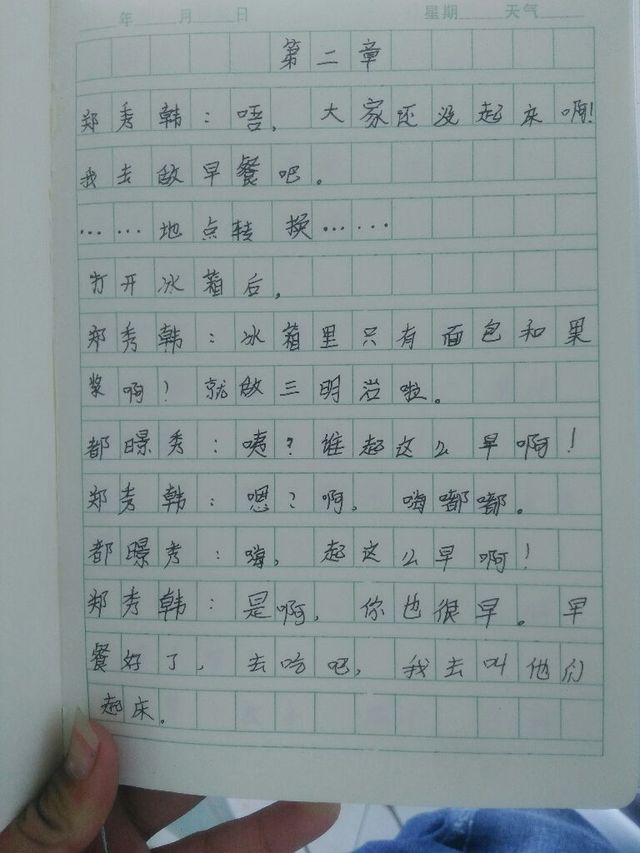 年 月 日 星期 天气
第二章
郑秀韩：唔，大家还没起来啊！
我去做早餐吧。
……地点转换……
打开冰箱后，
郑秀韩：冰箱里只有面包和果
浆啊！就做三明治啦。
都暻秀：咦？谁起这么早啊！
郑秀韩：嗯？啊，嗨嘟嘟。
都暻秀：嗨，起这么早啊！
郑秀韩：是啊，你也很早。早
餐好了，去吃吧，我去叫他们
起床。